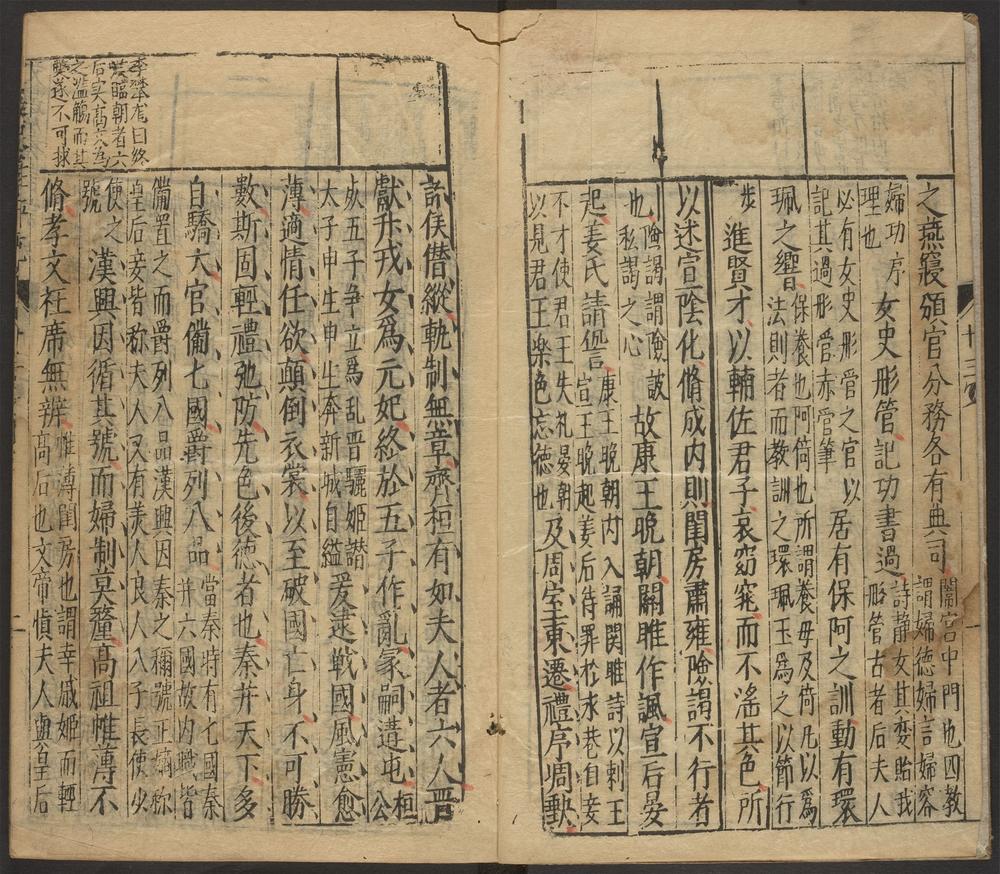 之燕寢頒官分務各有典司
閽宮中門也四教
謂婦德婦言婦容
婦功序
理也
女史彤管記功書過
詩静女其孌貽我
彤管古者后夫人
必有女史彤管之官以
記其過彤管赤管筆
居有保阿之訓動有環
珮之響
保養也阿倚也所謂養母及倚凡以爲
法則者而教訓之環珮玉爲之以節行
步
進賢才以輔佐君子哀窈窕而不滛其色所
以述宣陰化脩成内則閨房肅雍險謁不行者
也險謁謂險詖
私謁之心
故康王晚朝關雎作諷宣后晏
起姜氏請愆
康王晚朝内人誦関雎詩以刺王
宣王晚起姜后待罪於永巷自妾
不才使君王失礼晏朝
以見君王楽色忘德也
及周室東遷禮序凋缺
諸侯僭縱軌制無章齊桓有如夫人者六人晋
獻升戎女爲元妃終於五子作亂冢嗣遘屯
桓
公
灾五子争立爲乱晋驪姬譖
太子申生申生奔新城自縊
爰逮戰國風憲愈
薄適情任欲顛倒衣裳以至破國亡身不可勝
數斯固輕禮弛防先色後德者也秦并天下多
自驕大官備七國爵列八品
當秦時有七國秦
并六國故内職皆
備置之而爵列八品漢興因秦之稱號正嫡称
皇后妾皆称夫人又有美人良人八子長使少
使之
號
漢興因循其號而婦制莫釐高祖帷薄不
脩孝文衽席無辨
帷薄閨房也謂幸戚姬而輕
高后也文帝慎夫人與皇后
曰終
臨朝者六
后實高
之濫觴而其
弊遂不可救